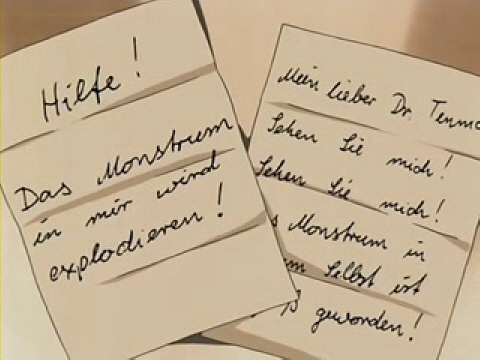 Hilfe!
Das Monstrum
in mir wird
explodieren!
Mein lieber Dr. Tenma
Sehen Sie mich!
Sehen Sie mich!
s Monstrum in
Selbst ist
ß geworden!